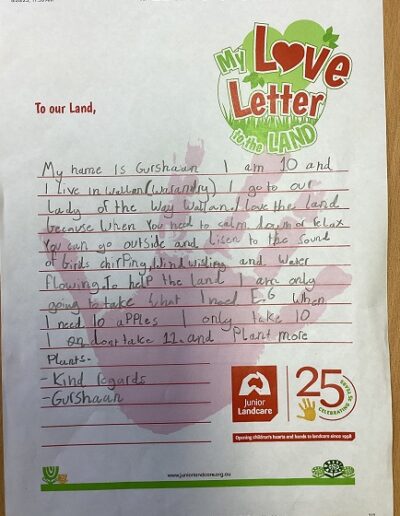 My Love
Letter
to the LAND
To our Land,
My name is Gurshaan I am 10 and
I live in Wallan (Wurundry) I go to our
lady of the Way Wallan I love the land
because when you need to calm down or relax
You can go outside and lisen to the sound
of birds chirping, wind wisling and water
flowing. To help the land I am only
going to take what I need E.G when
I need 10 apples I only take 10
I don't take 11. and Plant more
Plants.
- Kind regards
- Gurshaan
Junior
Landcare
25 YEARS
CELEBRATING
Opening children's hearts and hands to landcare since 1998
www.juniorlandcare.org.au